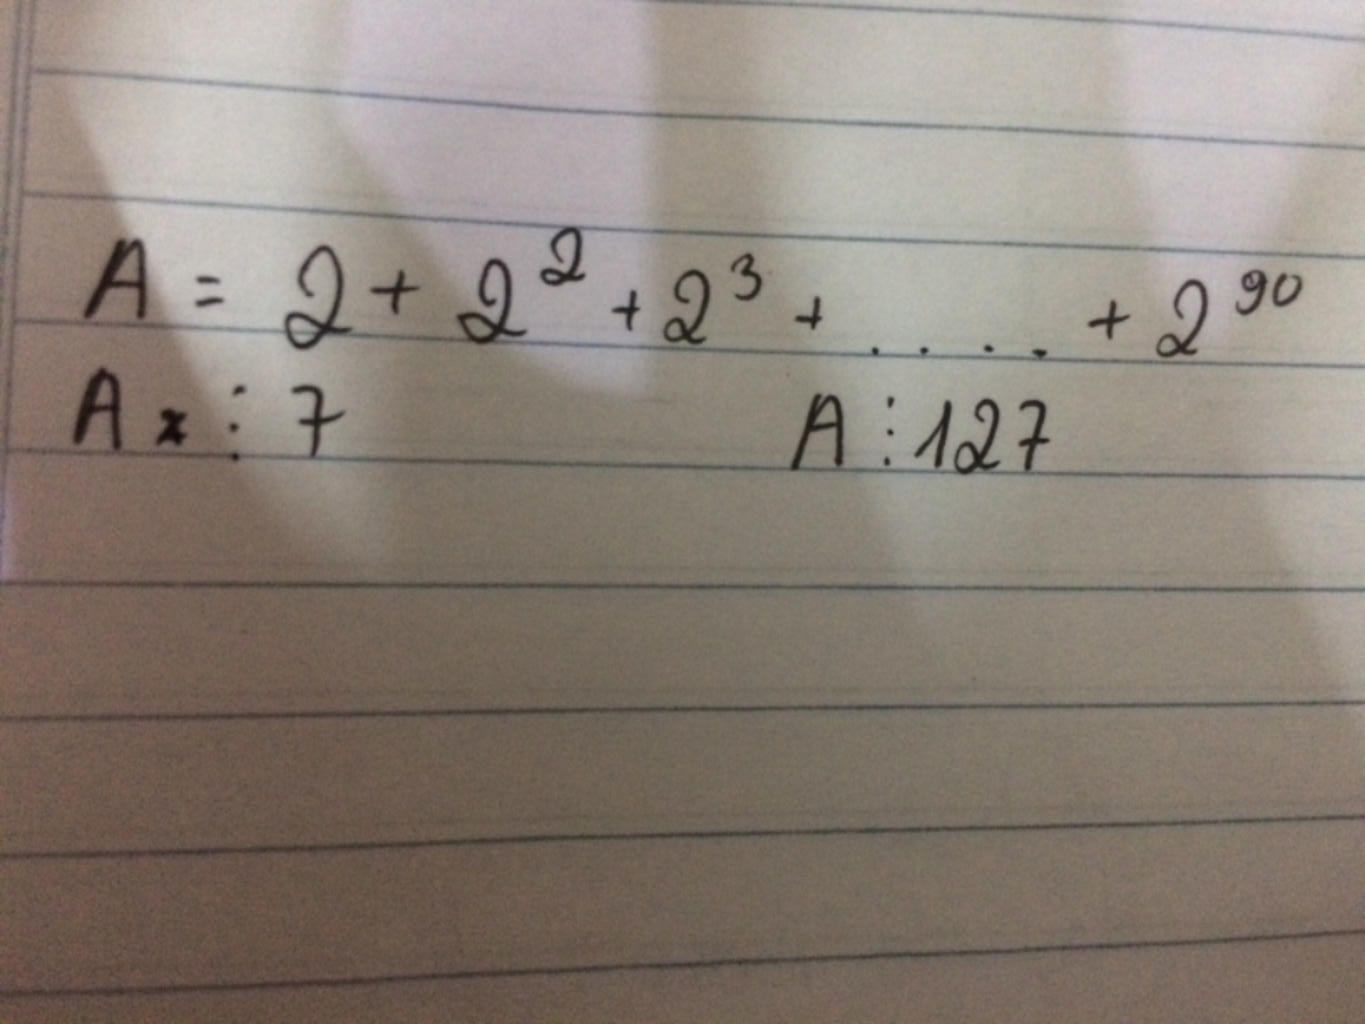 A = 2 + 2² + 2³ + .... + 2⁹⁰
A ⋮ 7 A ⋮ 127